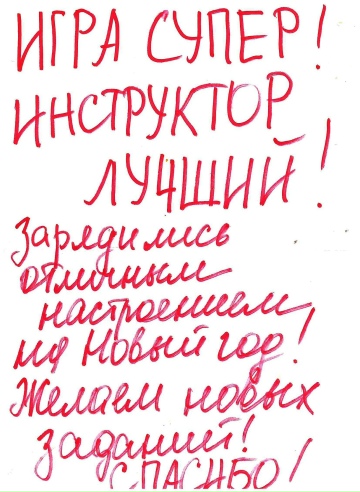 ИГРА СУПЕР!
ИНСТРУКТОР
ЛУЧШИЙ!
Зарядились
отличным
настроением
на Новый год!
Желаем новых
заданий!
СПАСИБО!